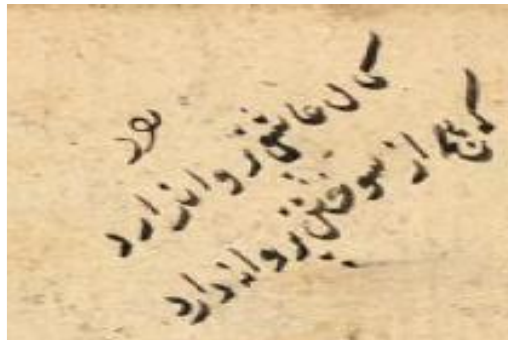 کمال عاشقی پروانه دارد
که هیچ از سوختن پروا ندارد